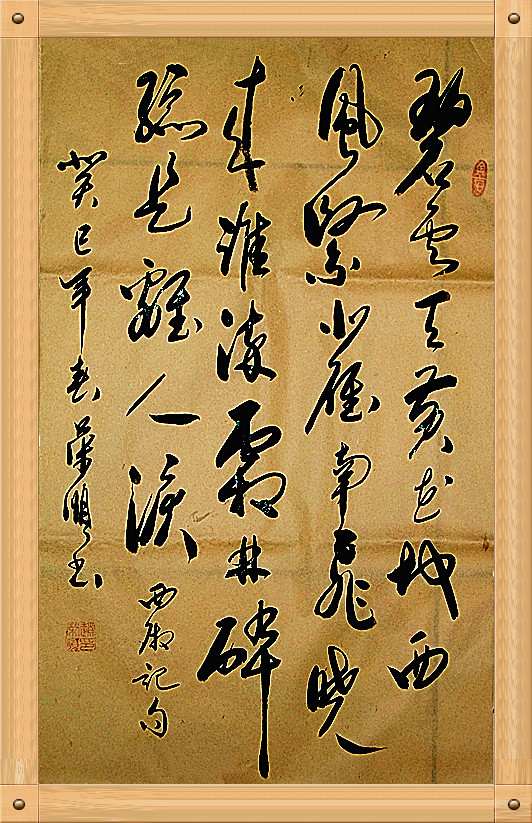 碧雲天黄花地西
風緊北雁南飛晓
来誰染霜林醉
總是離人淚 西厢記句
癸巳年春 荣鵬书